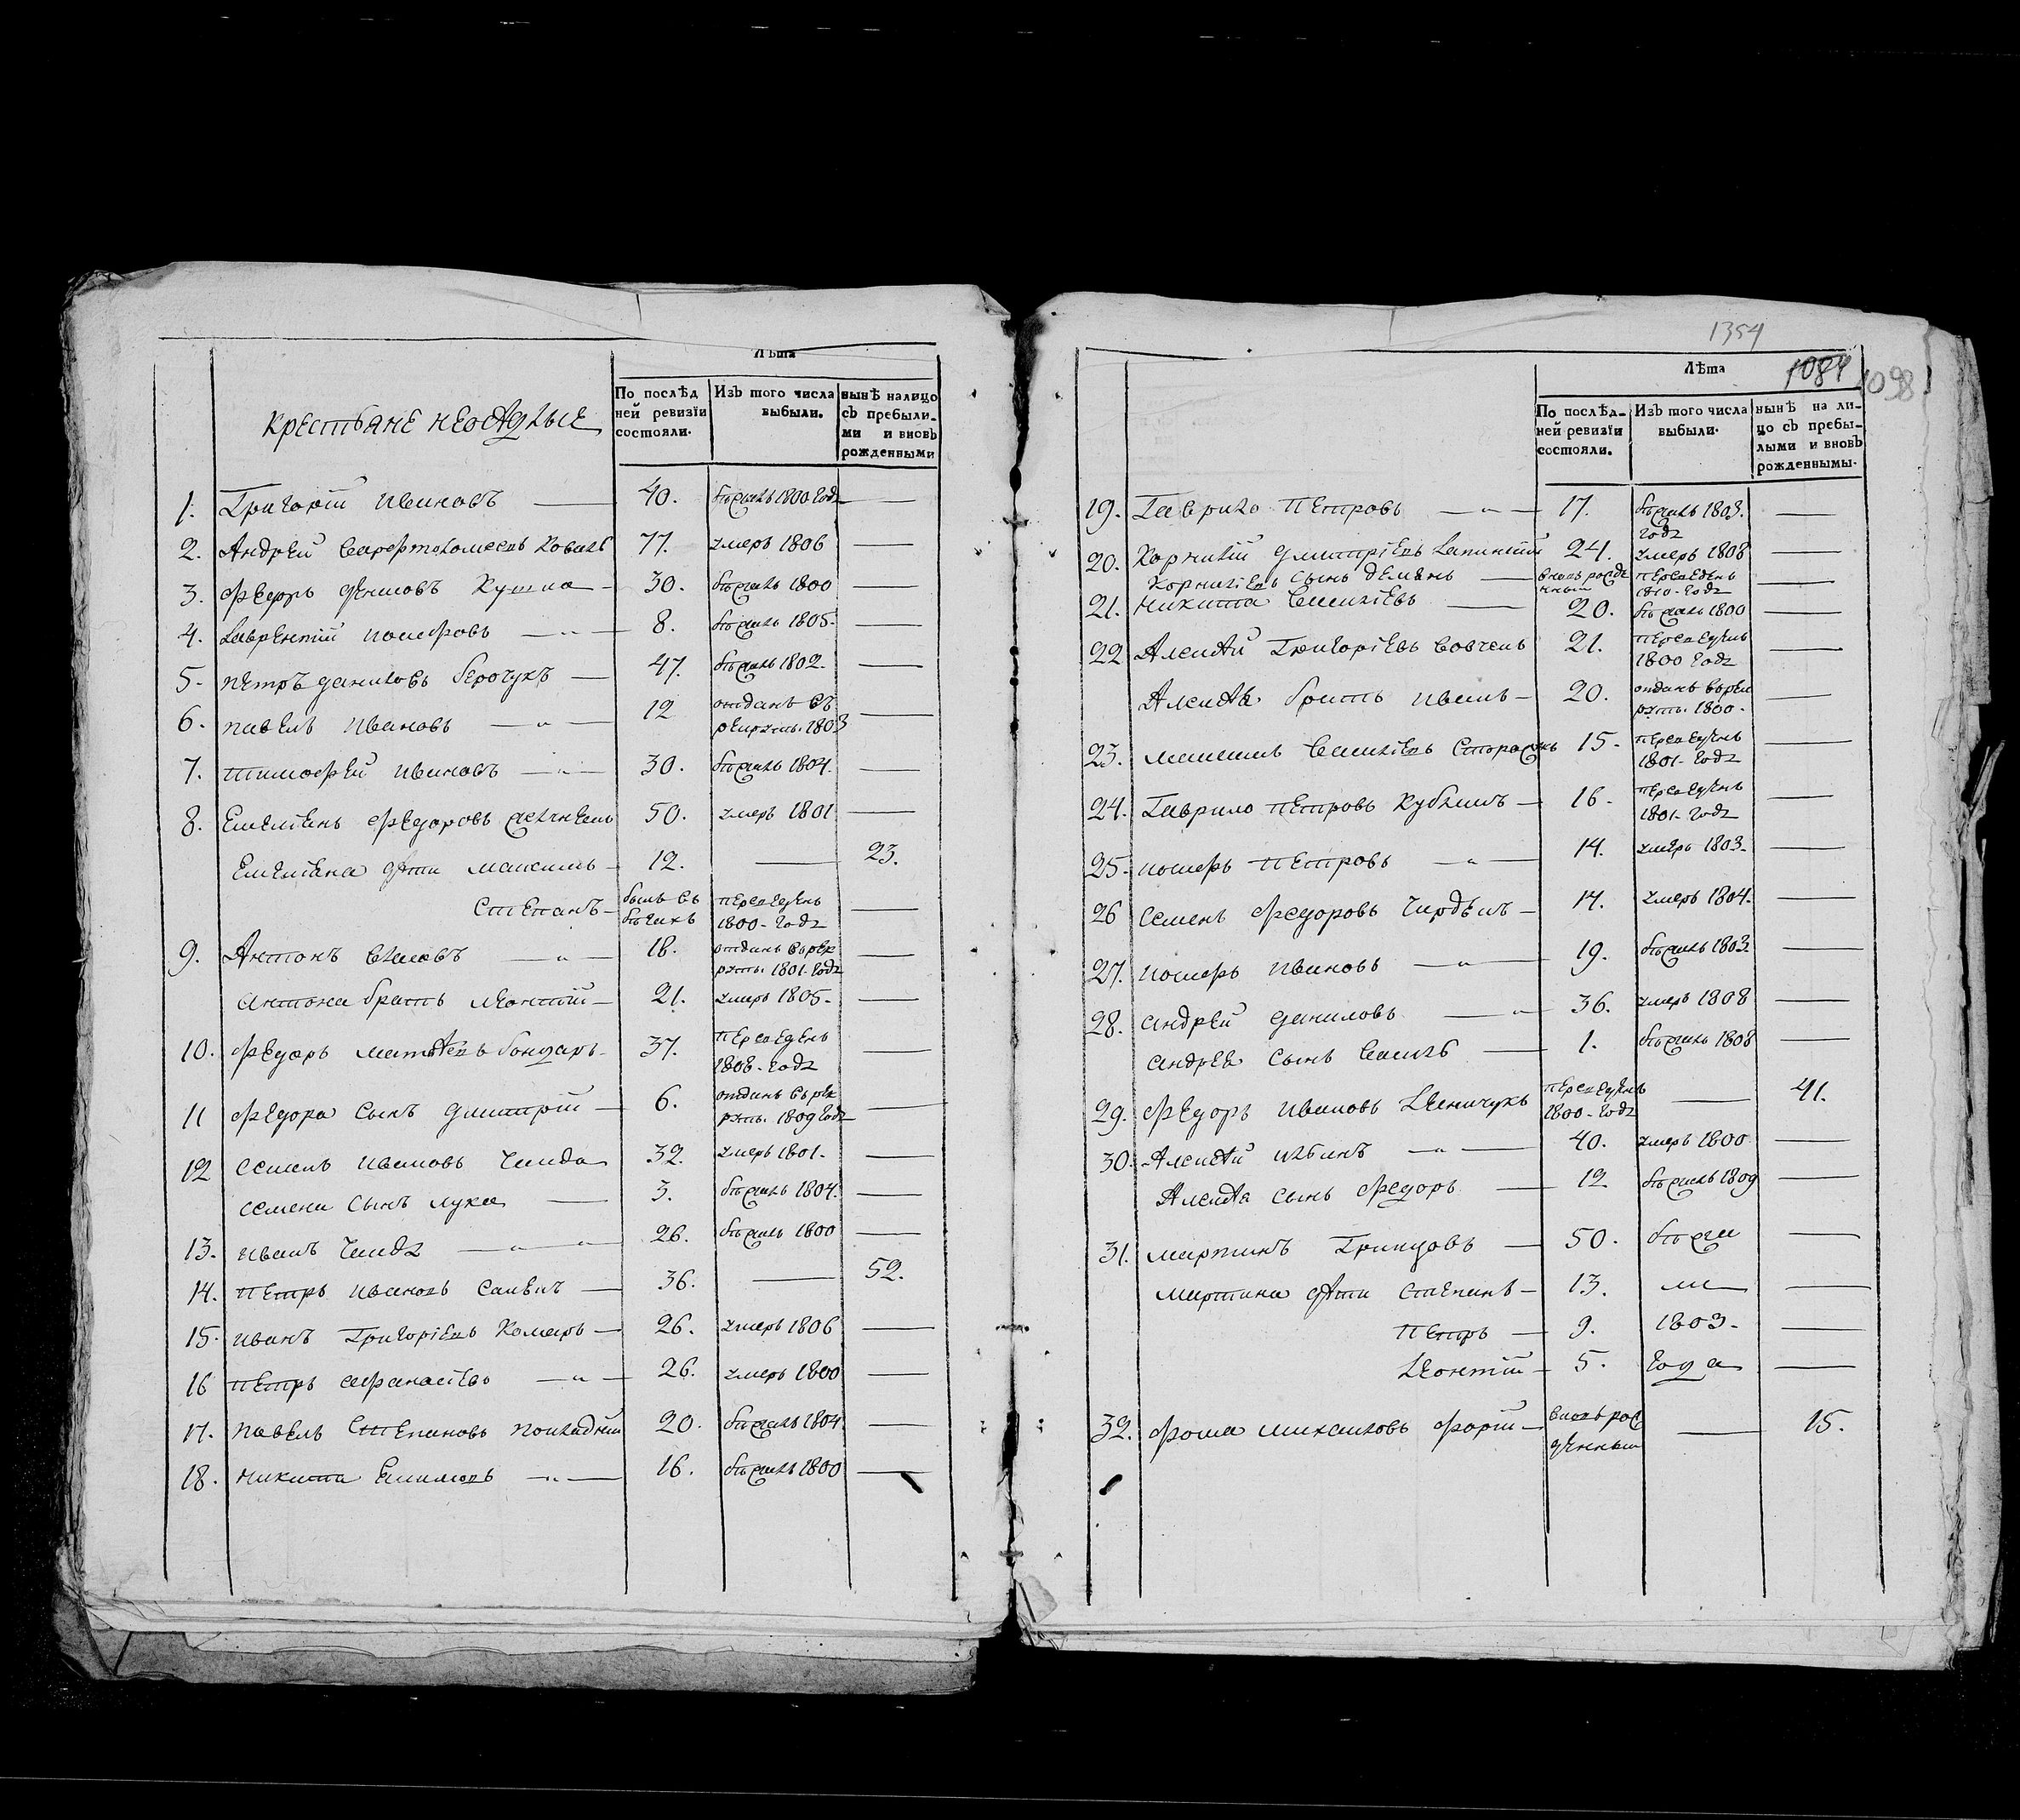 Лѣта
крестьане неоседлые
По послѣд
ней ревизїи
состояли.
Изъ того числа
выбыли.
нынѣ налицо
съ пребыли-
ми и вновь
рожденными
1. Григорїй Ивановъ — 40. бѣжалъ 1800 года —
2. Андрей Варфтоломеевъ Коваль 77. умеръ 1806 —
3. Федоръ Кушна — 30. бѣжалъ 1800 —
4. Лаврентїй — 8. бѣжалъ 1805. —
5. петръ даниловъ — 47. бѣжалъ 1802. —
6. павелъ Ивановъ — 12 отданъ въ
рекруты. 1803 —
7. тимофей Ивановъ — 30. бѣжалъ 1804. —
8. Емелїенъ федоровъ 50. умеръ 1801 —
Емелїана дѣти максимъ — 12. — 23.
Степанъ — былъ въ
бѣгахъ переведенъ
1800. года —
9. Антонъ — 18. отданъ въ рек
руты. 1801. года —
антона братъ леонтїй — 21. умеръ 1805. —
10. федоръ матвѣевъ бондаръ. 37. переведенъ
1808. года —
11 федора сынъ дмитрїй — 6. отданъ въ рек
руты. 1809 года —
12 семенъ ивановъ Чинда 32. умеръ 1801. —
семена сынъ лука — 3. бѣжалъ 1804. —
13. иванъ Чинда — 26. бѣжалъ 1800 —
14. петръ ивановъ — 36. — 52.
15. иванъ Григорїевъ Комаръ — 26. умеръ 1806 —
16 петръ афанасїевъ — 26. умеръ 1800 —
17. павелъ Степановъ 20. бѣжалъ 1804. —
18. никита — 16. бѣжалъ 1800 —
1354
Лѣта
1084
1098
По послѣд-
ней ревизїи
состояли.
Изъ того числа
выбыли.
нынѣ на ли-
цо съ пребы-
лыми и вновь
рожденнымы.
19. Гаврило петровъ — 17. бѣжалъ 1803.
года —
20. Корнилїй дмитрїевъ 24. умеръ 1808 —
Корнилїевъ сынъ демянъ — вновь рожде
нный переведенъ
1810. года —
21. никита Василїевъ — 20. бѣжалъ 1800 —
22 Алексѣй Григорїевъ Вовченъ 21. переведенъ
1800 года —
Алексѣя братъ иванъ — 20. отданъ въ рек
руты. 1800. —
23. Василїевъ 15. переведенъ
1801. года —
24. Гаврило петровъ — 16. переведенъ
1801. года —
25. петровъ — 14. умеръ 1803. —
26 семенъ федоровъ — 14. умеръ 1804. —
27. ивановъ — 19. бѣжалъ 1803 —
28. андрей даниловъ — 36. умеръ 1808 —
андрея сынъ — 1. бѣжалъ 1808 —
29. федоръ ивановъ переведенъ
1800. года — 41.
30. Алексѣй — 40. умеръ 1800 —
Алексѣя сынъ федоръ — 12 бѣжалъ 1809 —
31. мартинъ Грицовъ — 50. бѣжа —
мартина дѣти степанъ — 13. ли —
петръ — 9. 1803. —
Леонтїй — 5. года —
32. фома михаиловъ — вновь рож
денный — 15.